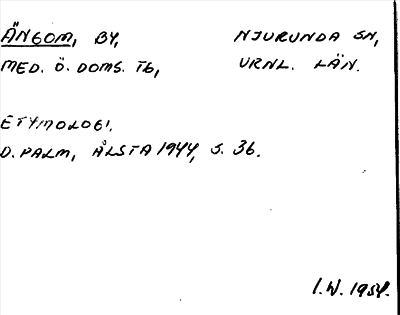 ÄNGOM, BY, NJURUNDA SN,
MED. Ö. DOMS. TB, VRNL. LÄN.
ETYMOLOGI.
D. PALM, ÅLSTA 1944, S. 36.
I.W. 1954.